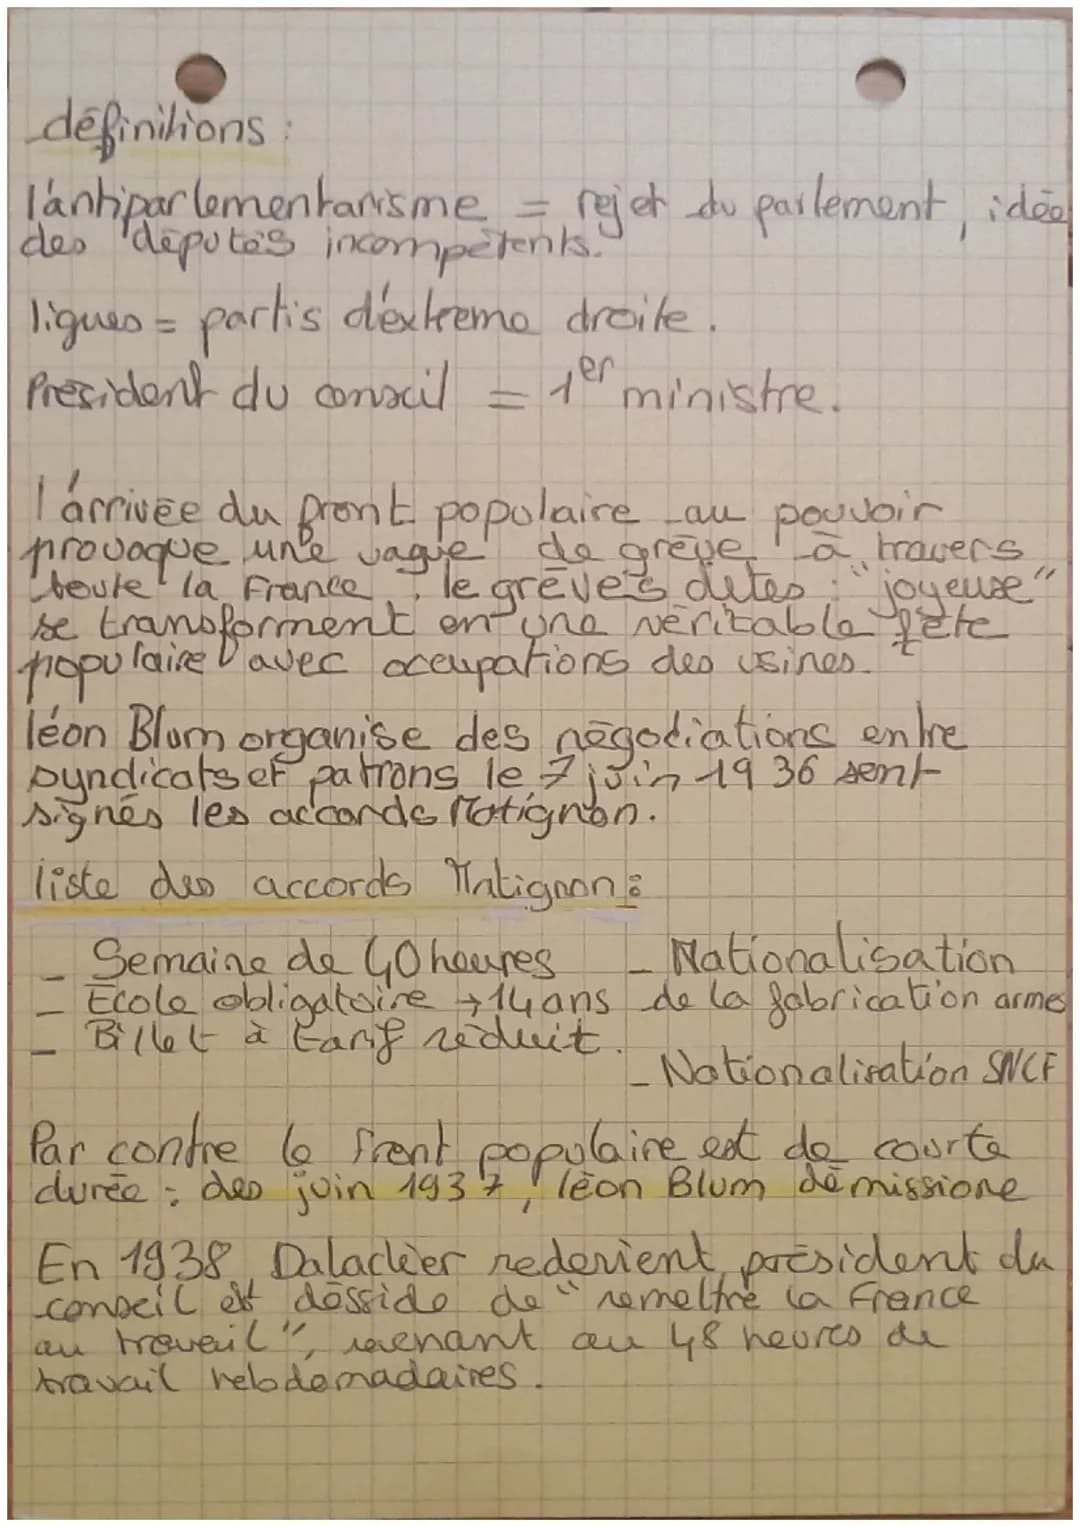 définitions :
l'antiparlementarisme = rejet du parlement, idée
des députés incompétents.
ligues = partis d'extreme droite.
Président du conseil = 1er ministre.
l'arrivée du front populaire au pouvoir
provoque une vague de grève à travers
toute la France, le grèves dites : "joyeuse"
se transforment en une véritable fête
populaire avec occupations des usines.
léon Blum organise des négociations entre
syndicats et patrons le 7 juin 1936 sent
signés les accords Matignon.
liste des accords Matignon :
- Semaine de 40 heures
- École obligatoire → 14 ans
- Billet à tarif réduit.
- Nationalisation
de la fabrication armes
- Nationalisation SNCF
Par contre le front populaire est de courte
durée : des juin 1937, léon Blum démissione
En 1938, Daladier redevient président du
conseil et désside de "remettre la France
au travail", revenant au 48 heures de
travail hebdomadaires.